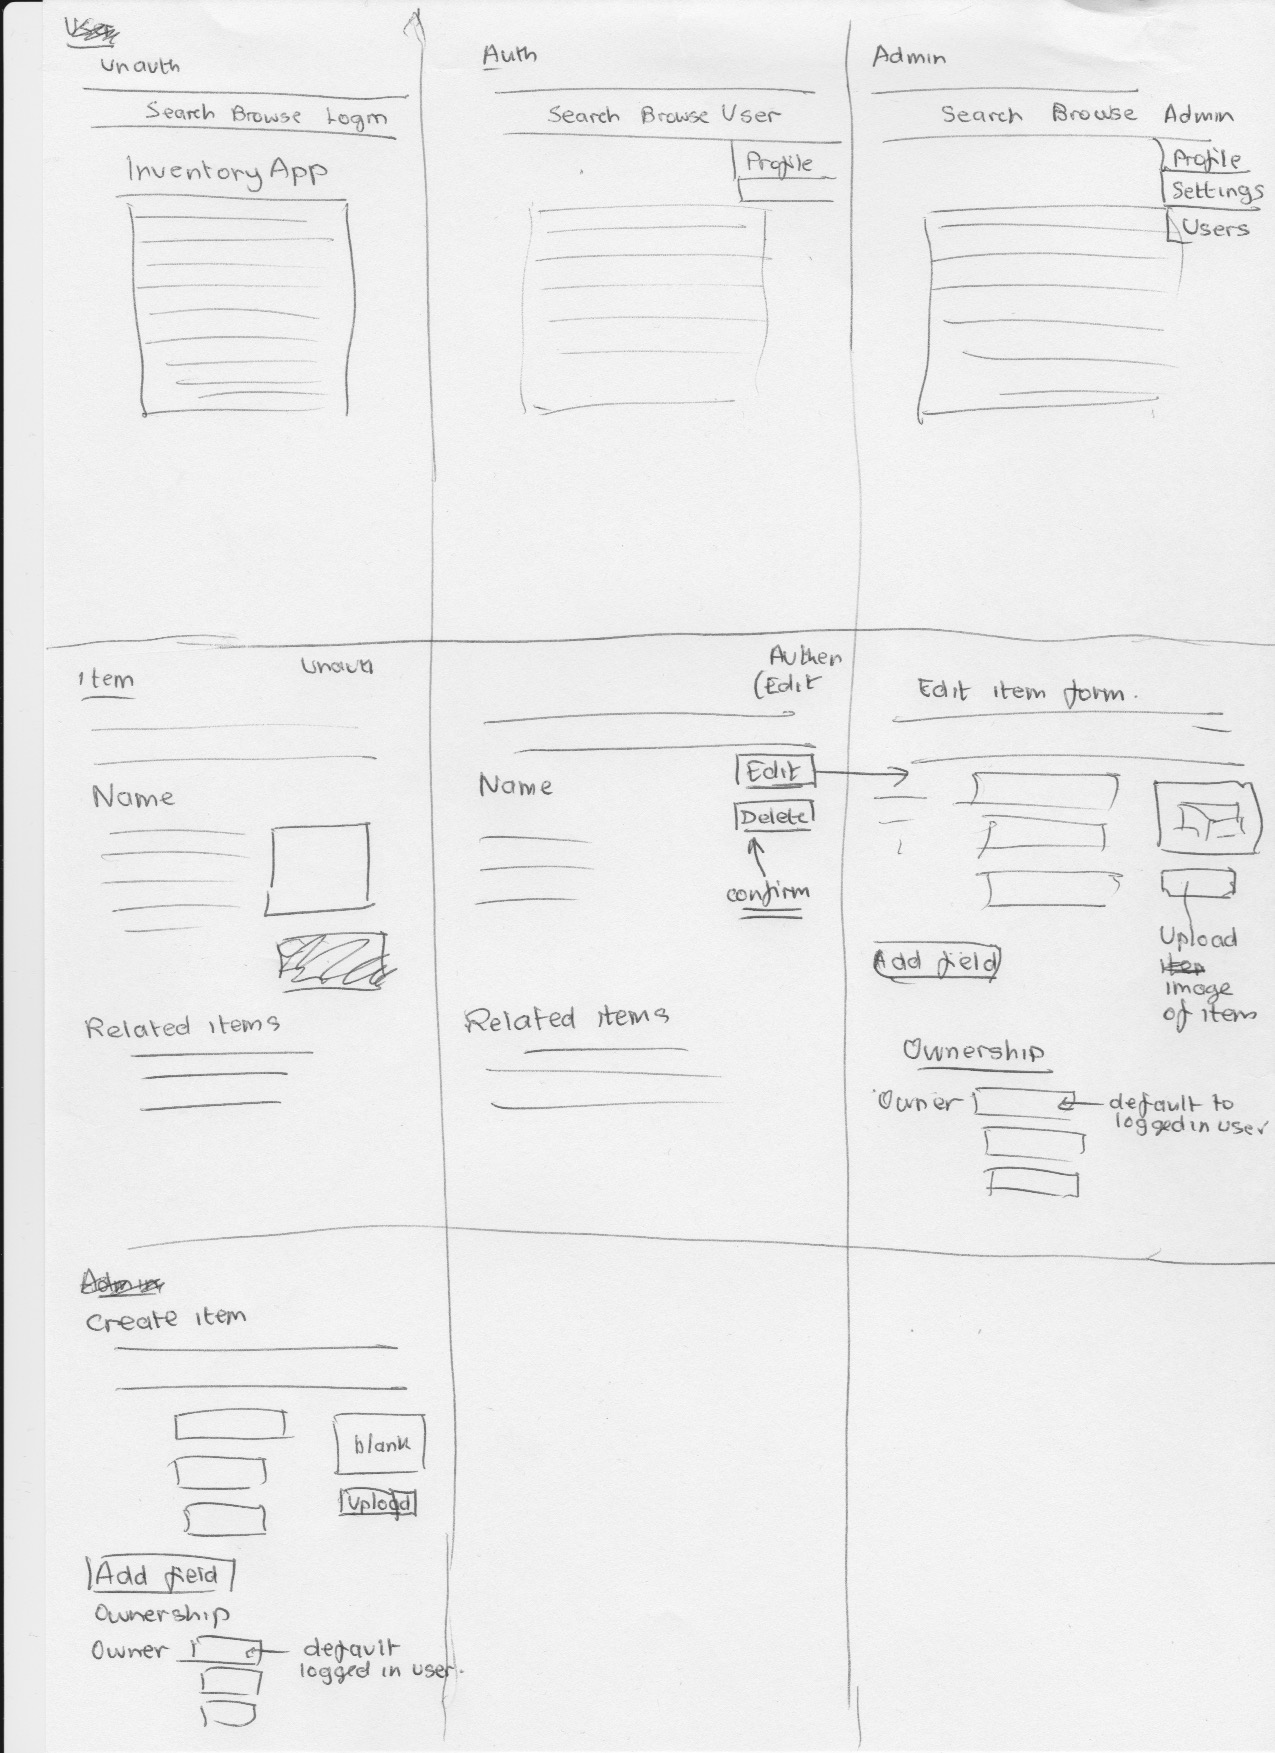 Unauth
Search Browse Login
Inventory App
Auth
Search Browse User
Profile
Admin
Search Browse Admin
Profile
Settings
Users
Item
Unauth
Name
Related items
Authen
(Edit
Name
Edit
Delete
confirm
Related items
Edit item form.
Add field
Upload
image
of item
Ownership
Owner
default to
logged in user
Create item
blank
Upload
Add field
Ownership
Owner
default
logged in user.